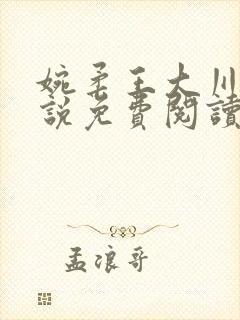 婉柔王大川
說免費閱讀
孟浪哥